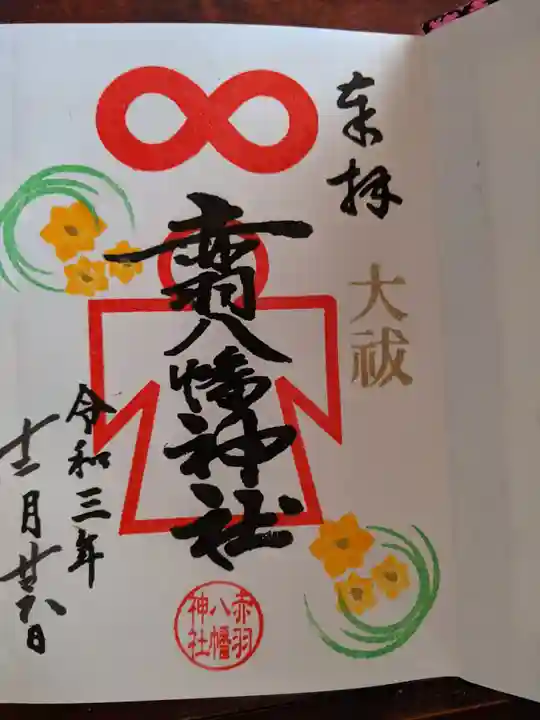 奉拝
大祓
赤羽八幡神社
令和三年
十二月廿六日
赤羽
八幡
神社